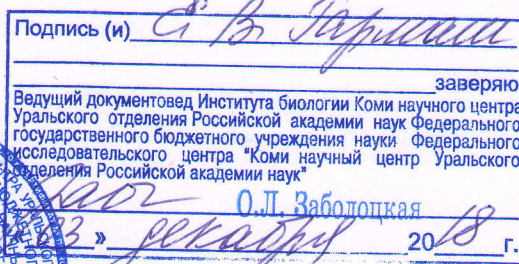 Подпись (и) В. Гармаш
заверяю
Ведущий документовед Института биологии Коми научного центра
Уральского отделения Российской академии наук Федерального
государственного бюджетного учреждения науки Федерального
исследовательского центра "Коми научный центр Уральского
отделения Российской академии наук"
О.Л. Заболоцкая
03 » декабря 2018 г.